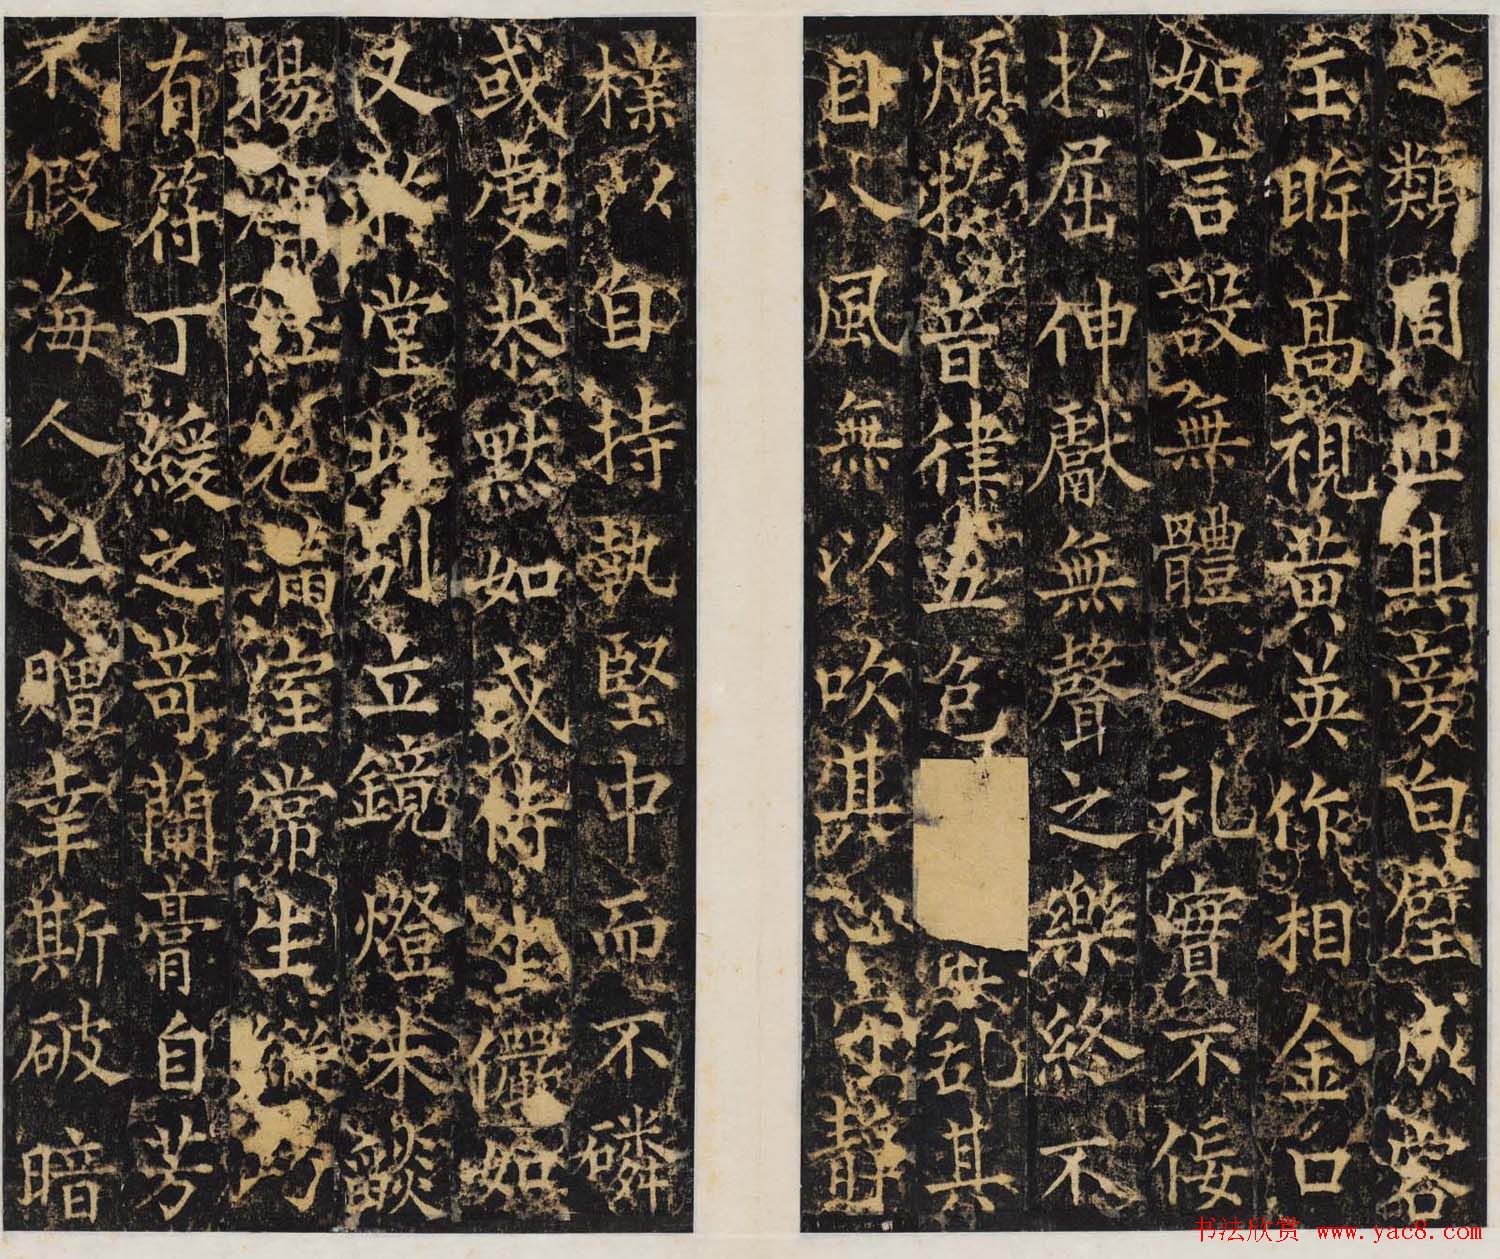 類周匝其旁白壁成容
主眸高視黄英作相金口
如言設無體之礼實不侫
於屈伸獻無聲之樂終不
煩於音律五色 亂其
目八風無以吹其心 聲
樸以自持執堅中而不磷
或虔恭默如或侍坐儼如
又於堂 别立鏡燈朱燄
揚輝紅光滿室常生 灼
有符丁緩之奇蘭膏自芳
不假海人之贈幸斯破暗
书法欣赏 www.yac8.com